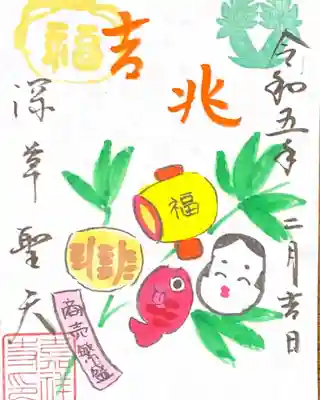 令和五年二月吉日
吉兆
福
福
商売繁盛
深草聖天